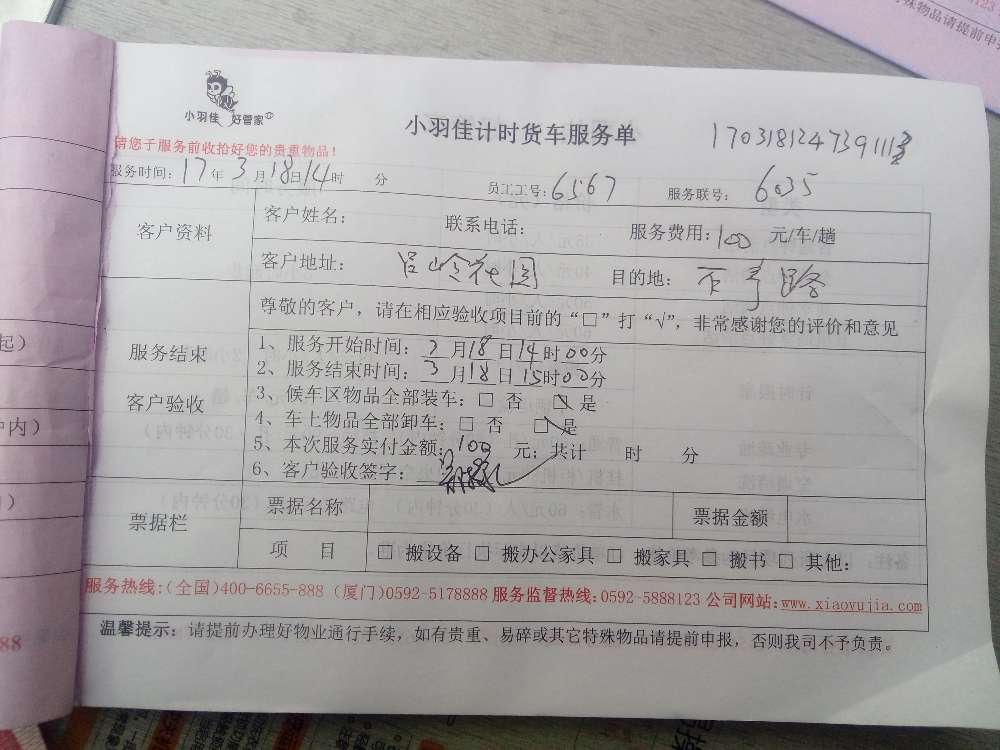 小羽佳 好管家
小羽佳计时货车服务单
请您于服务前收拾好您的贵重物品！
服务时间：17年3月18日14时 分 员工工号：6567 服务联号：6035
客户资料
客户姓名： 联系电话： 服务费用：100 元/车/趟
客户地址：吕岭花园 目的地：
尊敬的客户，请在相应验收项目前的“□”打“√”，非常感谢您的评价和意见
服务结束
客户验收
1、服务开始时间：3月18日14时00分
2、服务结束时间：3月18日15时00分
3、候车区物品全部装车：□ 否 □ 是
4、车上物品全部卸车：□ 否 □ 是
5、本次服务实付金额：100 元；共计 时 分
6、客户验收签字：
票据栏
票据名称 票据金额
项 目 □ 搬设备 □ 搬办公家具 □ 搬家具 □ 搬书 □ 其他：
服务热线：(全国)400-6655-888 (厦门)0592-5178888 服务监督热线：0592-5888123 公司网站：www.xiaoyujia.com
温馨提示：请提前办理好物业通行手续，如有贵重、易碎或其它特殊物品请提前申报，否则我司不予负责。
殊物品请提前申
起）
钟内）
88